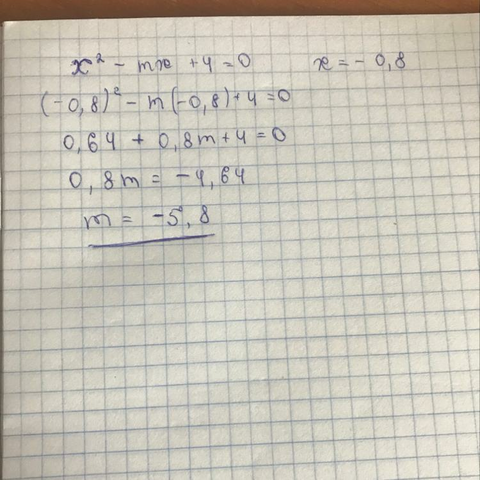 x² - mx + 4 = 0    x = - 0,8
(-0,8)² - m(-0,8) + 4 = 0
0,64 + 0,8m + 4 = 0
0,8m = -4,64
m = -5,8